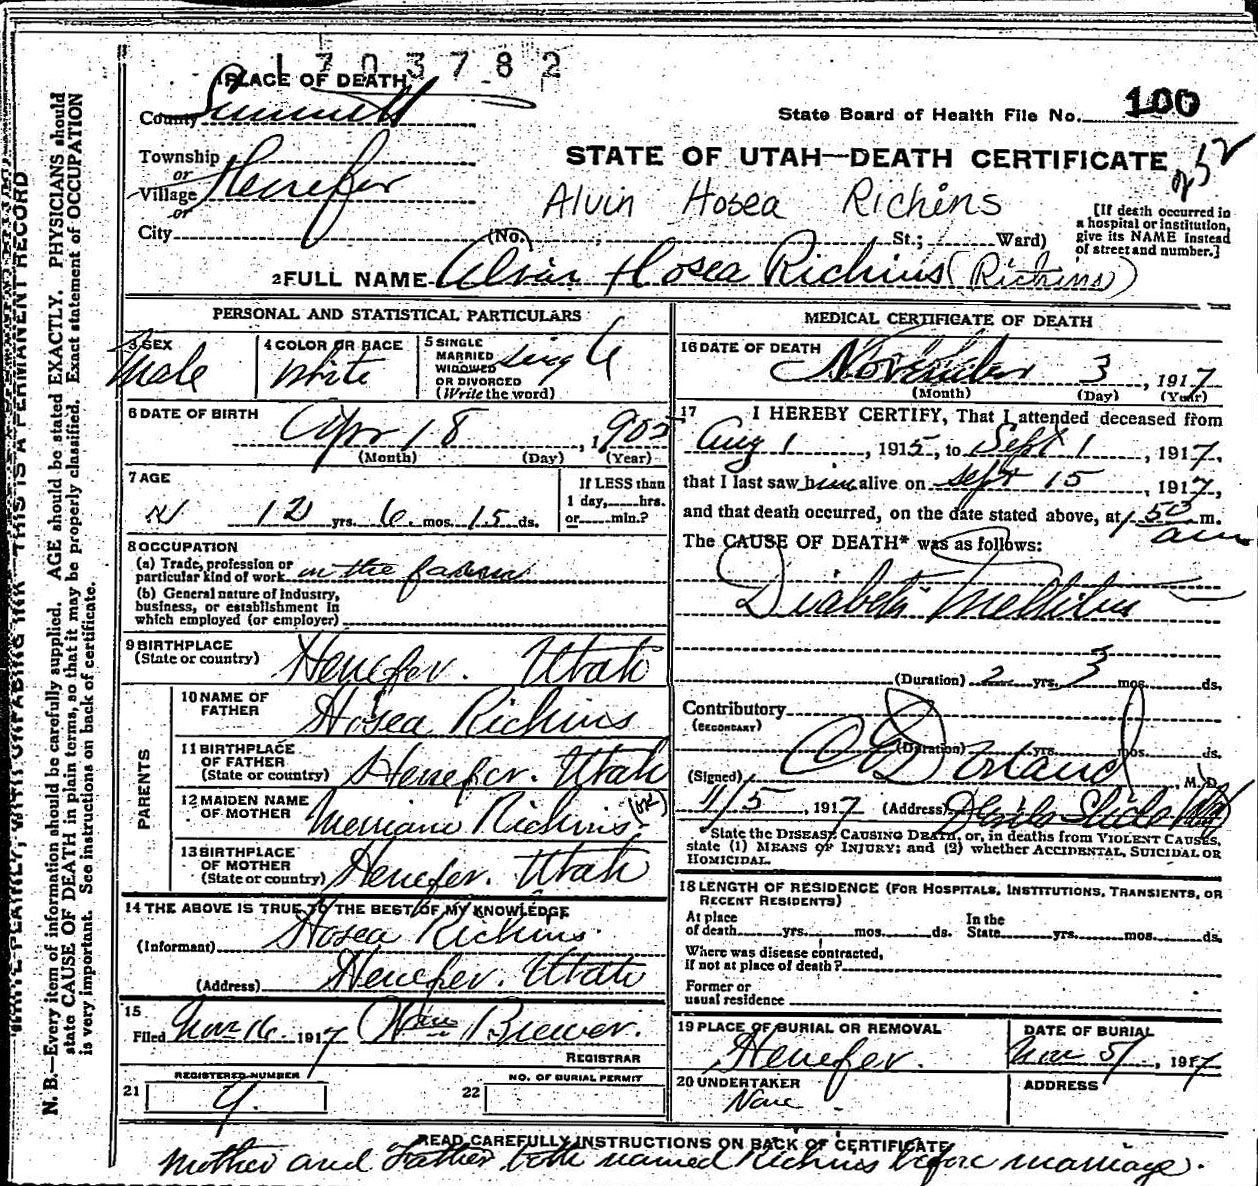 1703782
1 PLACE OF DEATH
County Summit
State Board of Health File No. 100
Township
or
Village Henefer
or
STATE OF UTAH—DEATH CERTIFICATE
252
Alvin Hosea Richins
City (No. , St.; Ward)
[If death occurred in
a hospital or institution,
give its NAME instead
of street and number.]
2 FULL NAME Alvin Hosea Richins (Richins)
PERSONAL AND STATISTICAL PARTICULARS
3 SEX Male
4 COLOR OR RACE White
5 SINGLE
MARRIED
WIDOWED
OR DIVORCED
(Write the word) single
6 DATE OF BIRTH
Apr 18, 1905
(Month) (Day) (Year)
7 AGE
12 yrs. 6 mos. 15 ds.
If LESS than
1 day, hrs.
or min.?
8 OCCUPATION
(a) Trade, profession or
particular kind of work on the farm
(b) General nature of Industry,
business, or establishment in
which employed (or employer)
9 BIRTHPLACE
(State or country) Henefer. Utah
PARENTS
10 NAME OF
FATHER Hosea Richins
11 BIRTHPLACE
OF FATHER
(State or country) Henefer. Utah
12 MAIDEN NAME
OF MOTHER Richins (OK)
13 BIRTHPLACE
OF MOTHER
(State or country) Henefer. Utah
14 THE ABOVE IS TRUE TO THE BEST OF MY KNOWLEDGE
(Informant) Hosea Richins.
(Address) Henefer. Utah
15
Filed Nov 16. 1917 Wm Brewer.
REGISTRAR
21 REGISTERED NUMBER 9.
22 NO. OF BURIAL PERMIT
MEDICAL CERTIFICATE OF DEATH
16 DATE OF DEATH
November 3, 1917
(Month) (Day) (Year)
17 I HEREBY CERTIFY, That I attended deceased from
Aug 1, 1915, to Sept 1, 1917,
that I last saw him alive on Sept 15, 1917,
and that death occurred, on the date stated above, at 1 50 m.
am
The CAUSE OF DEATH* was as follows:
Diabetes Mellitus
(Duration) 2 yrs. 3 mos. ds.
Contributory
(SECONDARY)
(Duration) yrs. mos. ds.
(Signed) M. D.
11/5, 1917 (Address)
State the DISEASE CAUSING DEATH, or, in deaths from VIOLENT CAUSES,
state (1) MEANS OF INJURY; and (2) whether ACCIDENTAL, SUICIDAL OR
HOMICIDAL.
18 LENGTH OF RESIDENCE (FOR HOSPITALS, INSTITUTIONS, TRANSIENTS, OR
RECENT RESIDENTS)
At place
of death yrs. mos. ds.
In the
State yrs. mos. ds.
Where was disease contracted,
If not at place of death?
Former or
usual residence
19 PLACE OF BURIAL OR REMOVAL
Henefer.
DATE OF BURIAL
Nov 5, 1917
20 UNDERTAKER
None
ADDRESS
READ CAREFULLY INSTRUCTIONS ON BACK OF CERTIFICATE
Mother and Father both named Richins before marriage.
WRITE PLAINLY, WITH UNFADING INK—THIS IS A PERMANENT RECORD
N. B.—Every item of information should be carefully supplied. AGE should be stated EXACTLY. PHYSICIANS should
state CAUSE OF DEATH in plain terms, so that it may be properly classified. Exact statement of OCCUPATION
is very important. See instructions on back of certificate.